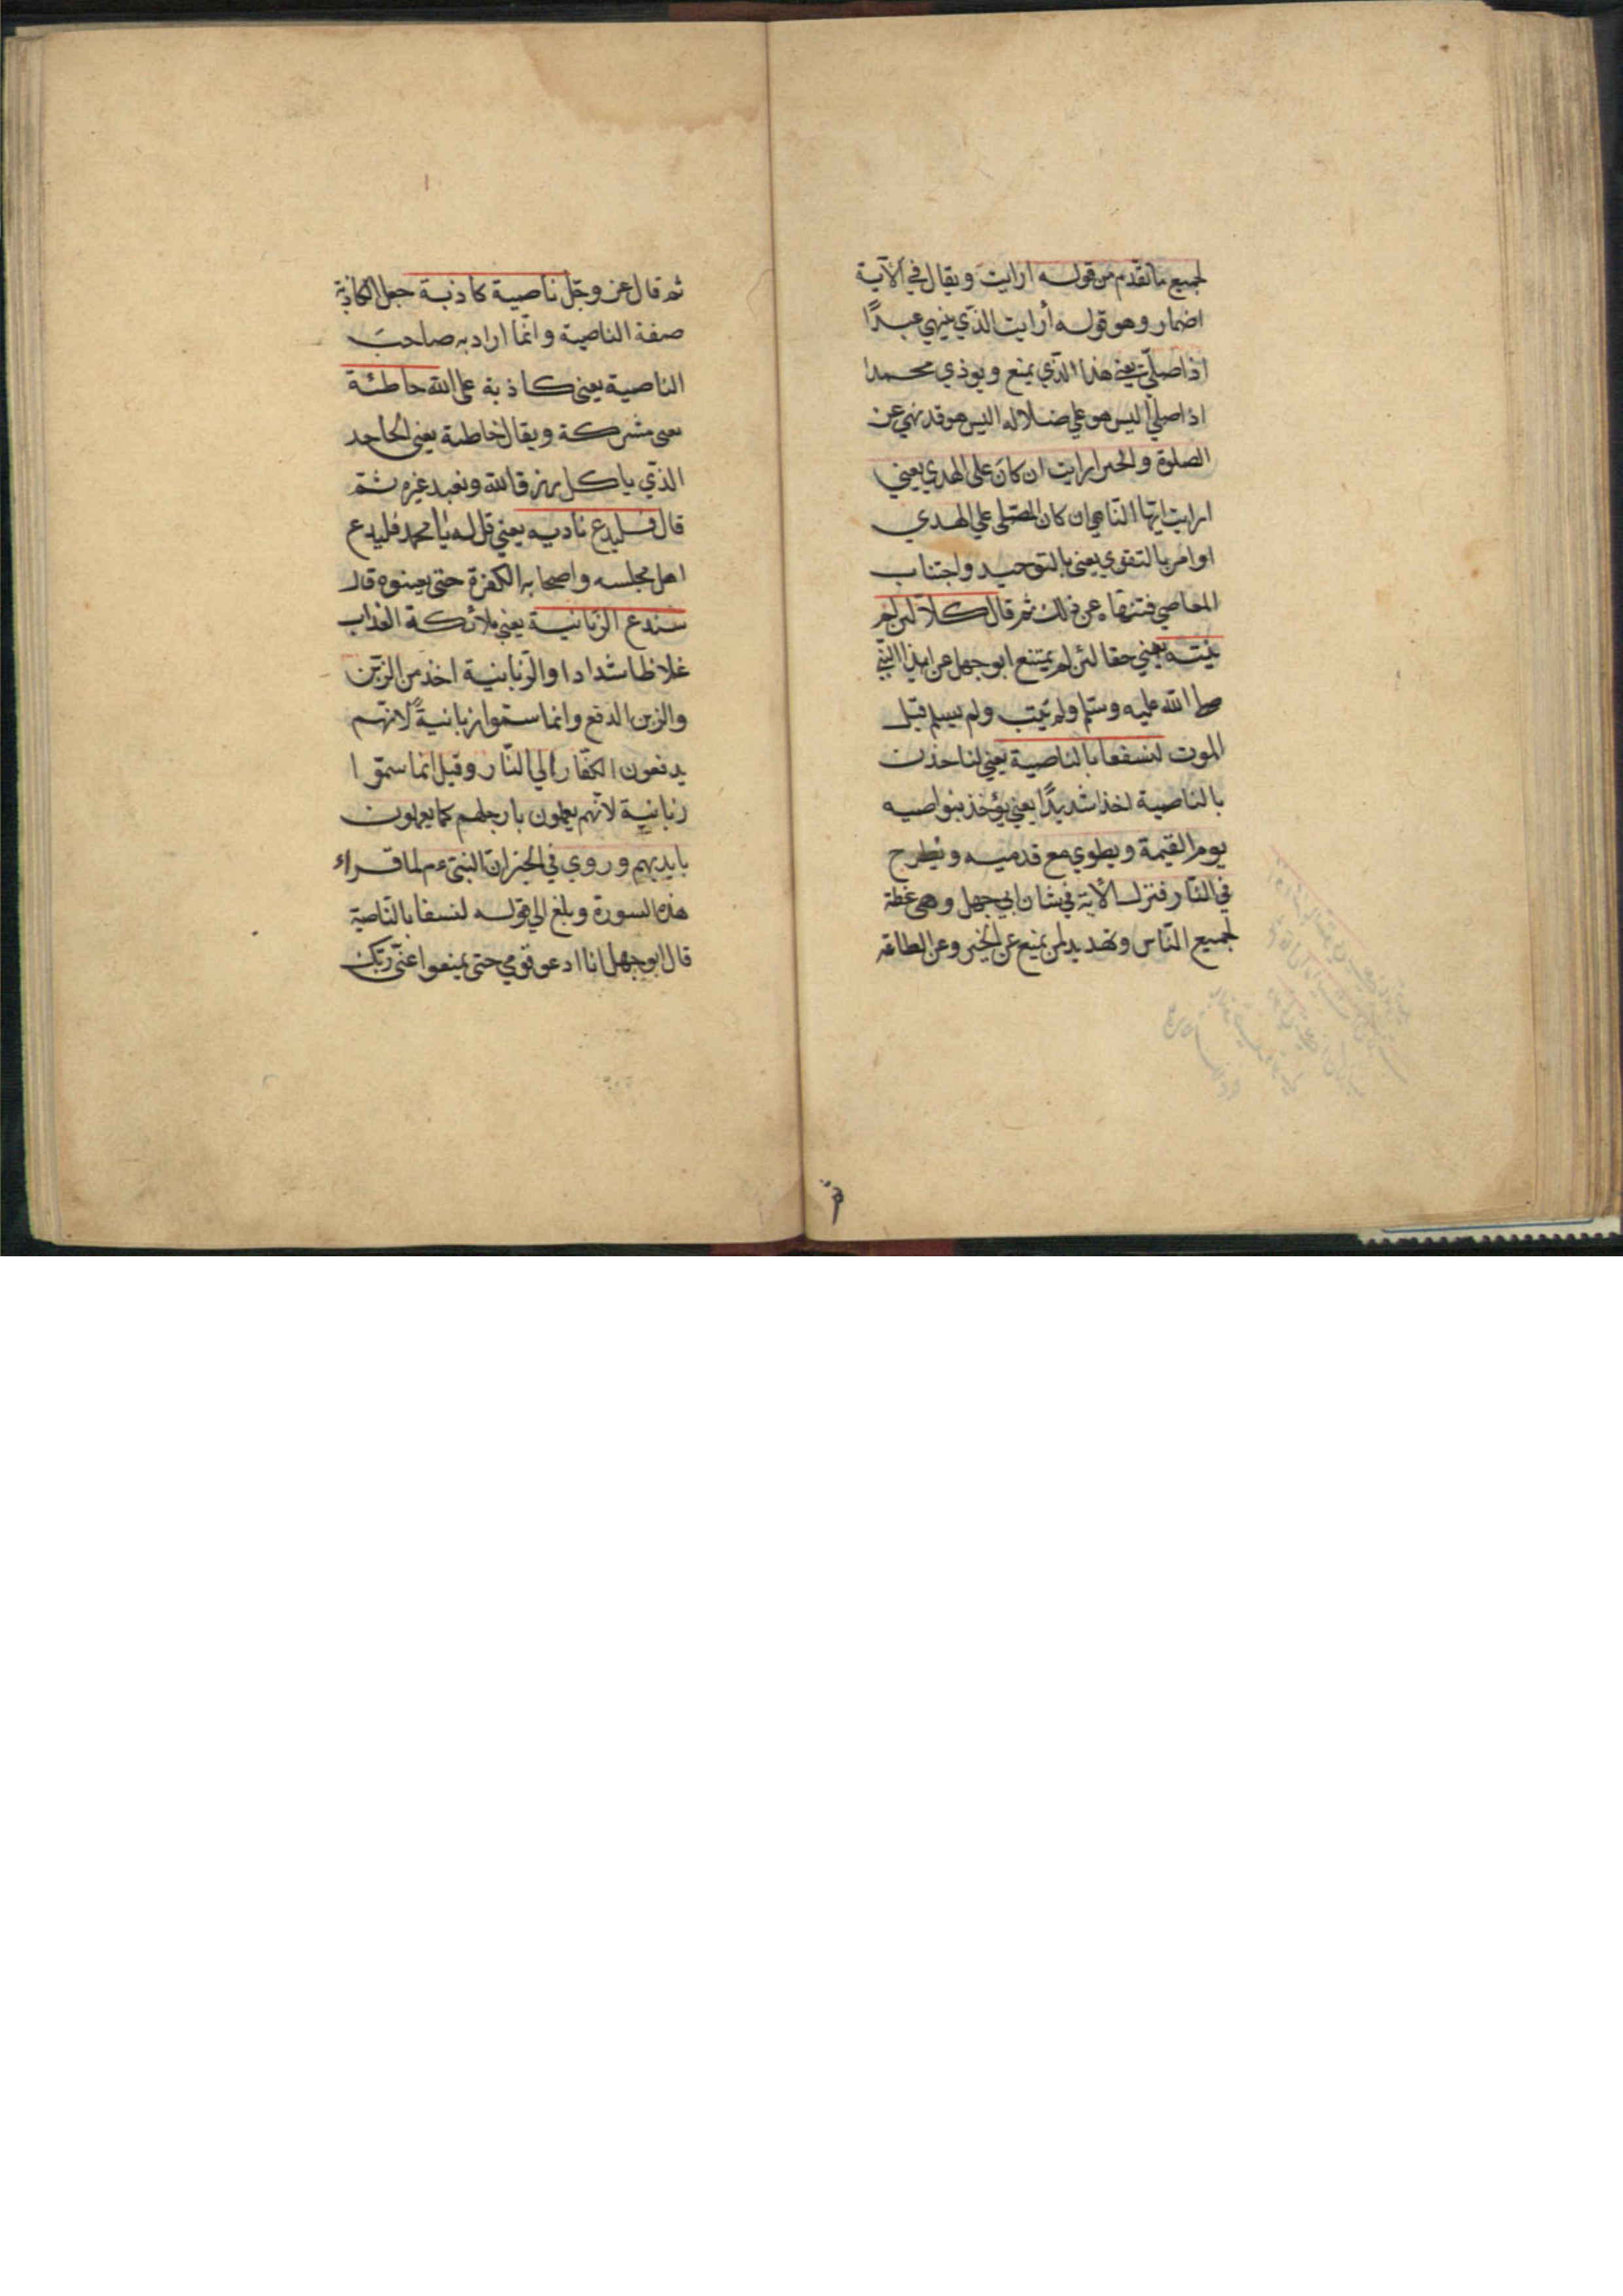 لجميع ما تقدم من قوله ارايت ويقال في الآية
اضمار وهو قوله أرايت الذي ينهي عبدًا
اذا صلي يعني هذا الذي يمنع ويوذي محمدا
اذا صلي اليس هو علي ضلاله اليس هو قد نهي عن
الصلوة والخير ارايت ان كان على الهدي يعني
ارايت ايها الناهي ان كان المصلى علي الهدي
او امر بالتقوي يعني بالتوحيد واجتناب
المعاصي فتنهاه عن ذلك ثم قال كلا لئن لم
ينته يعني حقا لئن لم يمتنع ابو جهل عن ايذا النبي
صلى الله عليه وسلم ولم يتب ولم يسلم قبل
الموت لنسفعا بالناصية يعني لناخذن
بالناصية اخذا شديدًا يعني يؤخذ بنواصيه
يوم القيمة ويطوي مع قدميه ويطرح
في النار فنزلت الآية في شان ابي جهل وهي عظة
لجميع الناس وتهديد لمن يمنع عن الخير وعن الطاعة
ثم قال عز وجل ناصية كاذبة جعل الكاذبة
صفة الناصية وانما اراد به صاحب
الناصية يعني كاذبة على الله خاطئة
يعني مشركة ويقال خاطية يعني الجاحد
الذي ياكل رزق الله ويعبد غيره ثم
قال فليدع ناديه يعني قل له يا محمد فليدع
اهل مجلسه واصحابه الكفرة حتى يعينوه قال
سندع الزبانية يعني ملائكة العذاب
غلاظا شدادا والزبانية اخذ من الزبن
والزبن الدفع وانما سموا زبانيةً لانهم
يدفعون الكفار الي النار وقيل انما سموا
زبانية لانهم يعملون بارجلهم كما يعملون
بايديهم وروي في الخبر ان النبي عم لما قراء
هذه السورة وبلغ الي قوله لنسفعا بالناصية
قال ابو جهل انا ادعو قومي حتى يمنعوا عني ربك